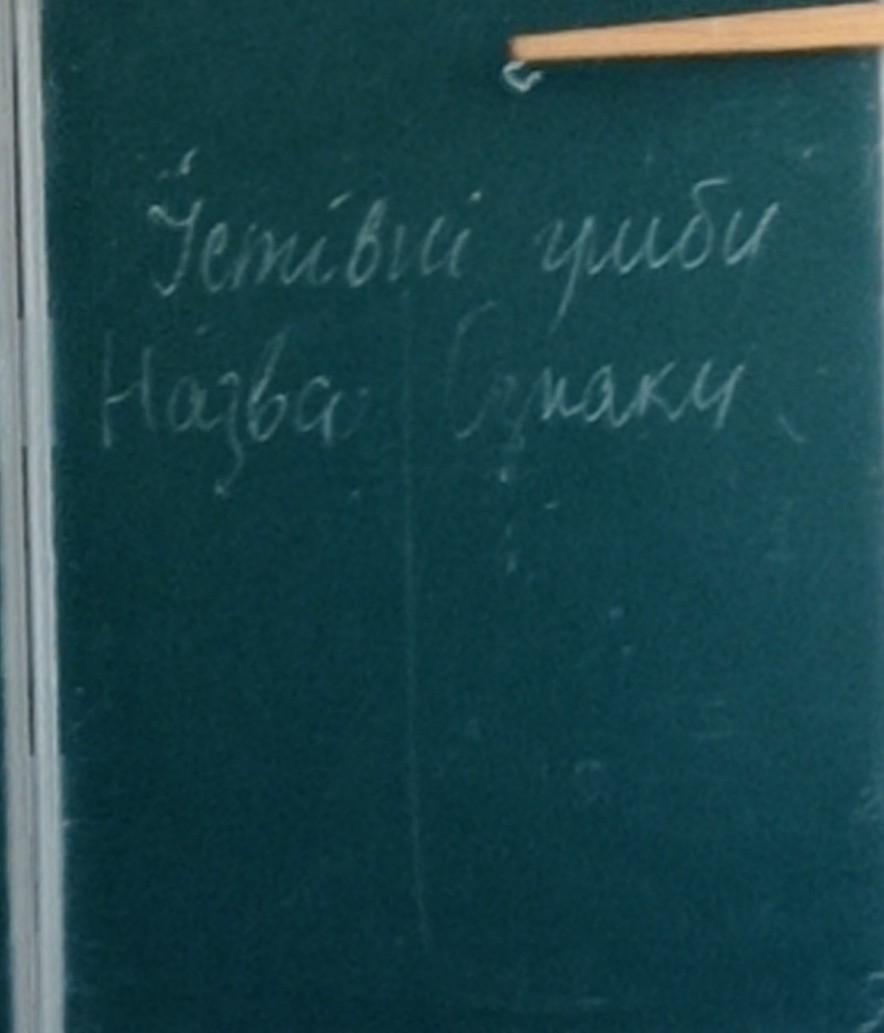 Їстівні гриби
Назва Ознаки